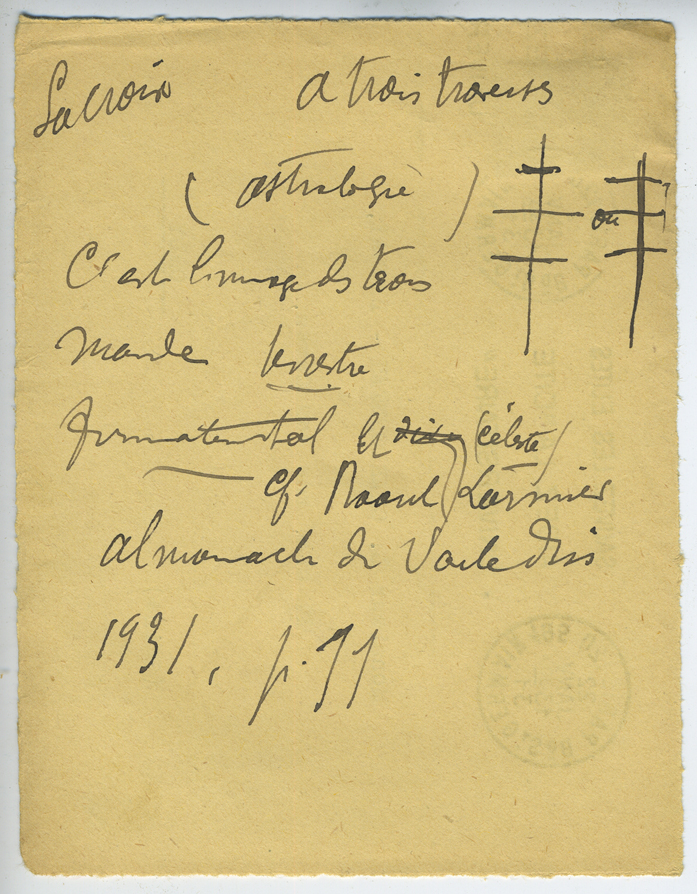 La croix a trois traverses
(astrologie)
ou
C'est l'image des trois
monde terrestre
firmamental et (céleste)
cf. Raoul Larmier
almanach de
1931, p. 71